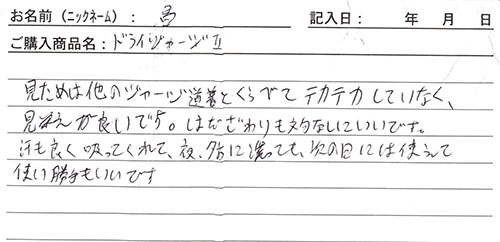 お名前(ニックネーム): 馬 記入日: 年 月 日
ご購入商品名: ドライジャージⅡ
見ためは他のジャージ道着とくらべてテカテカしていなく、
見栄えが良いです。はだざわりも文句なしにいいです。
汗も良く吸ってくれて、夜、夕方に洗っても、次の日には使えて
使い勝手もいいです